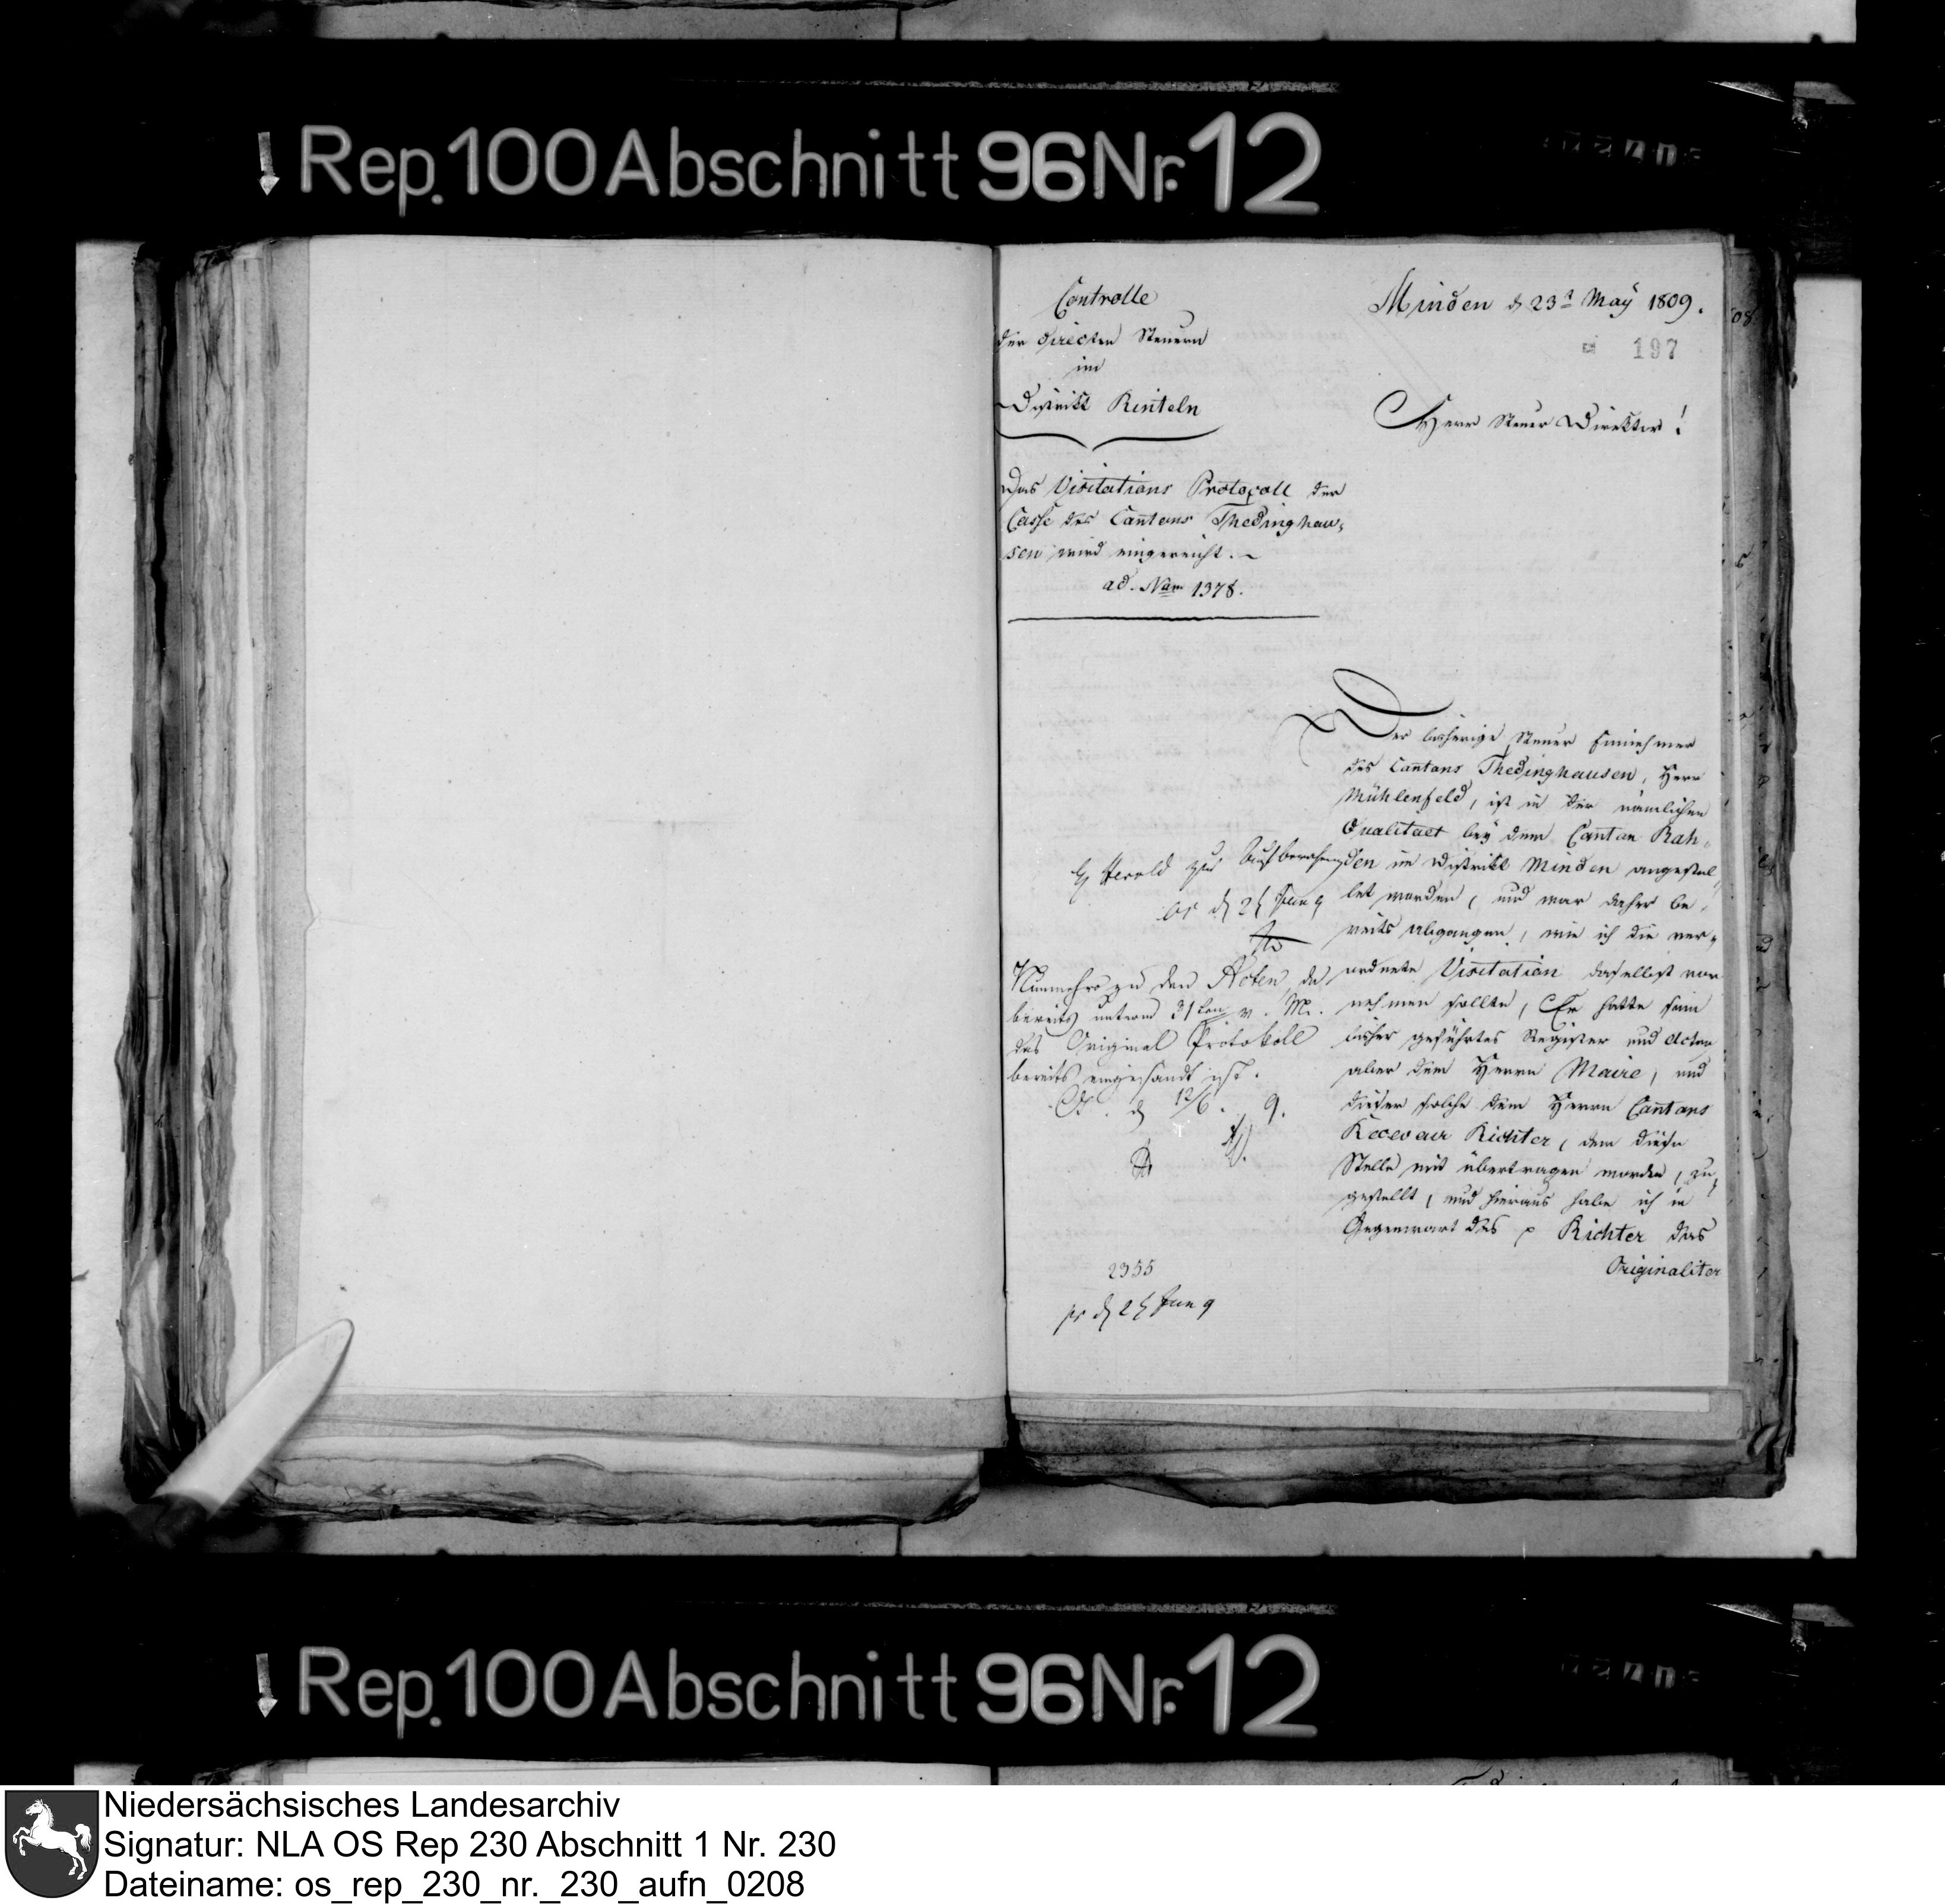 Rep. 100 Abschnitt 96 Nr. 12
Controlle
der directen Steuern
im
District Rinteln
Minden d 23t May 1809.
197
Herr Steuer Direktor!
Das Visitations Protocoll der
Casse des Cantons Thedinghau-
sen wird eingereicht.
ad. Num 1378.
Der bisherige Steuer Einnehmer
des Cantons Thedinghausen, Herr
Mühlenfeld, ist in der nämlichen
Qualitaet bey dem Canton Rah-
den im District Minden angestel-
let worden, und war daher be-
reits abgangen, wie ich die ver-
ordnete Visitation daselbst vor
nehmen sollte, Er hatte sein
bisher geführtes Register und Acten
aber dem Herrn Maire, und
dieser solche dem Herrn Cantons
Receveur Richter, dem diese
Stelle mit übertragen worden, zu-
gestellt, und hieraus habe ich in
Gegenwart des p Richter das
Originaliter
H Herold zur
Nunmehro zu den Acten, da
bereits unterm 31ten v. M.
das Original Protokoll
bereits eingesandt ist.
d 12/6. 9.
2355
pr d 2 Jun 9
Rep. 100 Abschnitt 96 Nr. 12
Niedersächsisches Landesarchiv
Signatur: NLA OS Rep 230 Abschnitt 1 Nr. 230
Dateiname: os_rep_230_nr._230_aufn_0208